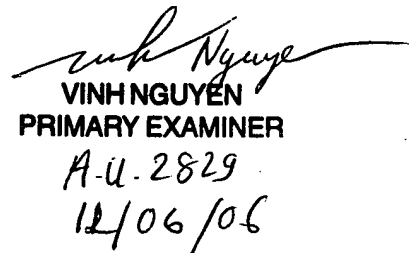 Vinh Nguye
VINH NGUYEN
PRIMARY EXAMINER
A.U. 2829
12/06/06